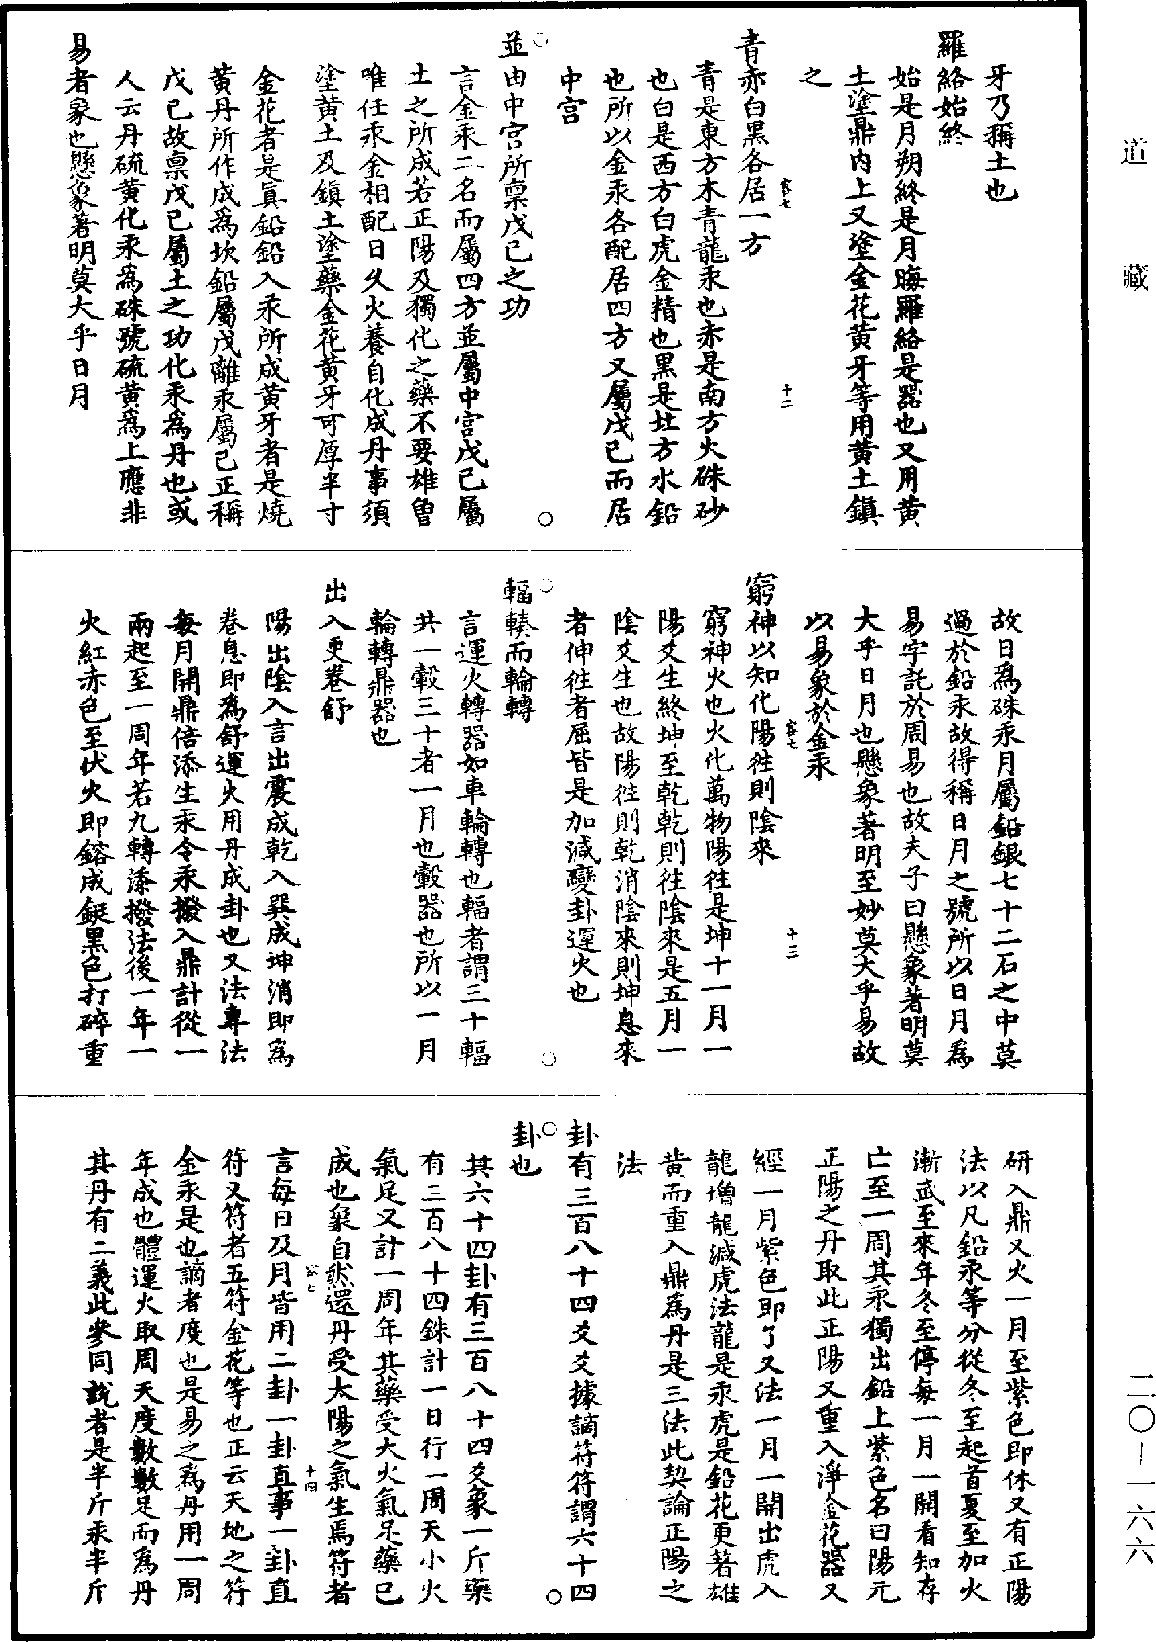 道藏
牙乃稱土也
羅絡始終
始是月朔終是月晦羅絡是器也又用黃
土塗鼎內上又塗金花黃牙等用黃土鎮
之
青赤白黑各居一方
青是東方木青龍汞也赤是南方火硃砂
也白是西方白虎金精也黑是北方水鉛
也所以金汞各配居四方又屬戊己而居
中宮
並由中宮所稟戊己之功
言金汞二名而屬四方並屬中宮戊己屬
土之所成若正陽及獨化之藥不要雄曾
唯任汞金相配日久火養自化成丹事須
塗黃土及鎮土塗藥金花黃牙可厚半寸
金花者是真鉛鉛入汞所成黃牙者是燒
黃丹所作成為坎鉛屬戊離汞屬己正稱
戊己故稟戊己屬土之功化汞為丹也或
人云丹硫黃化汞為硃號硫黃為上應非
易者象也懸象著明莫大乎日月
十二
故日為硃汞月屬鉛銀七十二石之中莫
過於鉛汞故得稱日月之號所以日月為
易字託於周易也故夫子曰懸象著明莫
大乎日月也懸象著明至妙莫大乎易故
以易象於金汞
窮神以知化陽往則陰來
窮神火也火化萬物陽往是坤十一月一
陽爻生終坤至乾乾則往陰來是五月一
陰爻生也故陽往則乾消陰來則坤息來
者伸往者屈皆是加減變卦運火也
輻輳而輪轉
言運火轉器如車輪轉也輻者謂三十輻
共一轂三十者一月也轂器也所以一月
輪轉鼎器也
出入更卷舒
陽出陰入言出震成乾入巽成坤消即為
卷息即為舒運火用丹成卦也又法專法
每月開鼎倍添生汞令汞撥入鼎計從一
兩起至一周年若九轉添撥法後一年一
火紅赤色至伏火即鎔成鋌黑色打碎重
十三
研入鼎又火一月至紫色即休又有正陽
法以凡鉛汞等分從冬至起首夏至加火
漸武至來年冬至停每一月一開看知存
亡至一周其汞獨出鉛上紫色名曰陽元
正陽之丹取此正陽又重入淨金花器又
經一月紫色即了又法一月一開出虎入
龍增龍減虎法龍是汞虎是鉛花更著雄
黃而重入鼎為丹是三法此契論正陽之
法
卦有三百八十四爻爻據謫符符謂六十四
卦也
其六十四卦有三百八十四爻象一斤藥
有三百八十四銖計一日行一周天小火
氣足又計一周年其藥受大火氣足藥已
成也象自然還丹受太陽之氣生焉符者
言每日及月皆用二卦一卦直事一卦直
符又符者五符金花等也正云天地之符
金汞是也謫者度也是易之為丹用一周
年成也體運火取周天度數數足而為丹
其丹有二義此參同說者是半斤汞半斤
十四
二〇–一六六